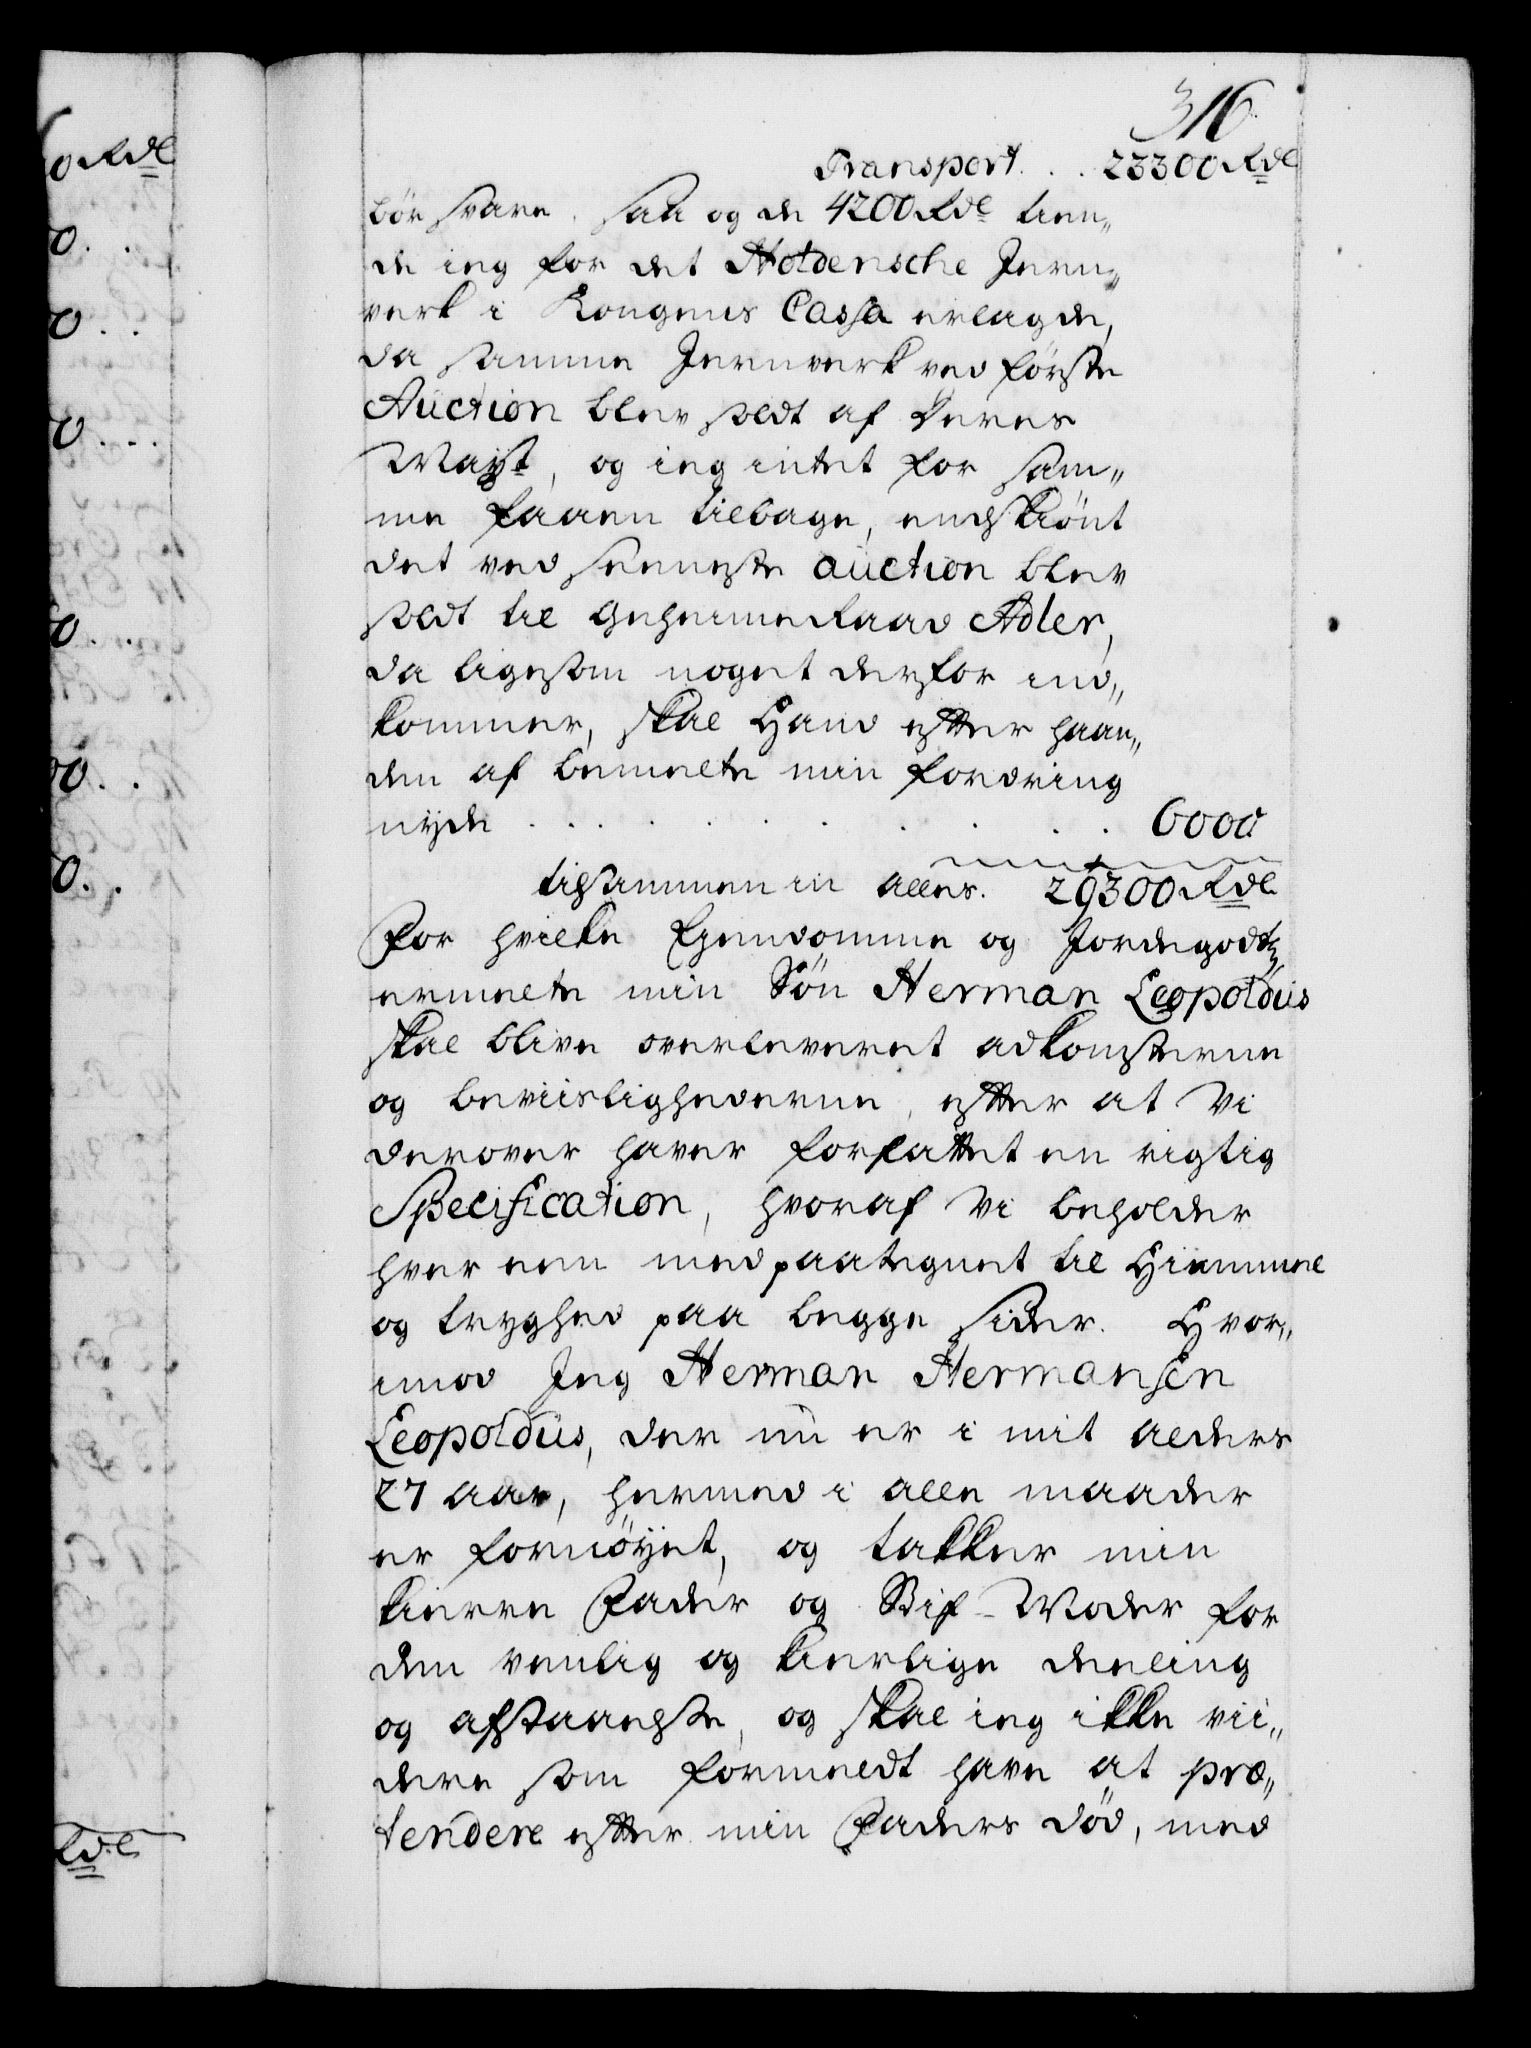 316.
Transport. . . 23300 Rdl
bör svare. Saa og de 4200 Rdl
de ieg for det Holdensche Jern„
verk i Kongens Cassa erlagde,
da samme Jernverk ved förste
Auction blev soldt af Deres
Mayst, og ieg intet for sam„
me faaen tilbage, endskiönt
det ved seeneste auction blev
soldt til Geheime Raad Adler,
da ligesom noget derfor ind„
kommer, skal Hand efter haan„
den af bemelte min fordring
nyde . . . . . . . . . 6000
tilsammen in alles. 29300 Rdl
For hvilke Eyendomme og Jordegodtz
ermelte min Sön Herman Leopoldus
skal blive overleveret adkomsterne
og beviislighederne, efter at Vi
derover haver forfattet en rigtig
Specification, hvoraf Vi beholder
hver een med paategnet til
og tryghed paa begge Sider. Hvor„
imod Jeg Herman Hermansen
Leopoldus, der nu er i mit alders
27 aar, hermed i alle maader
er fornöyet, og takker min
kierre Fader og Stif-Moder for
den venlig og kierlige deeling
og afstaaelse, og skal ieg ikke vii„
dere som formeldt have at præ„
tendere efter min Faders död, med
0 Rdl
0. .
0. .
0 . . .
0. . .
00. .
0. .
Rdl